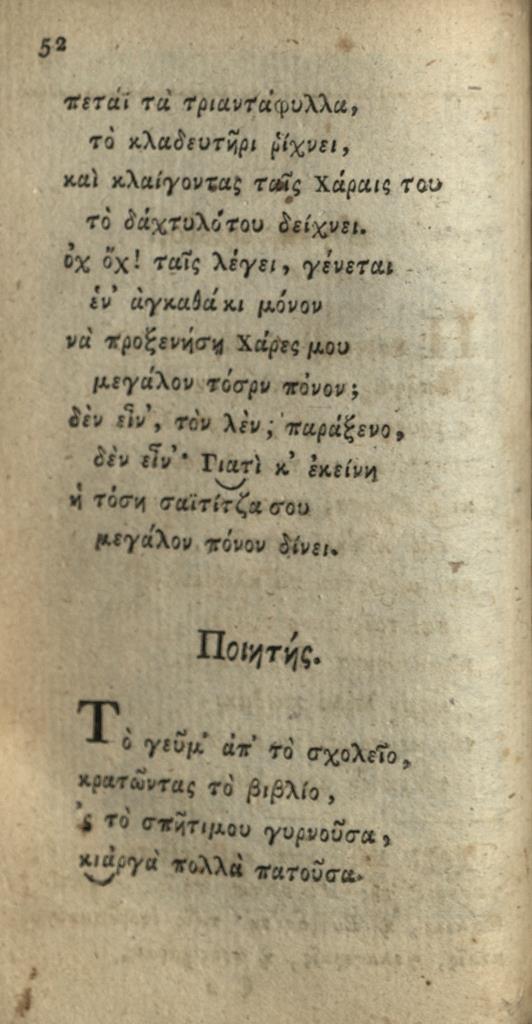 52
πετάϊ τὰ τριαντάφυλλα,
τὸ κλαδευτῆρι ῥίχνει,
καὶ κλαίγοντας ταῖς Χάραις του
τὸ δάχτυλότου δείχνει.
ὀχ ὄχ! ταῖς λέγει, γένεται
ἑν' ἀγκαθάκι μόνον
νὰ προξενήσῃ Χάρες μου
μεγάλον τόσρν πόνον;
δὲν εἶν', τὸν λὲν; παράξενο,
δὲν εἶν'· Γιατὶ κ' ἐκείνη
ἡ τόση σαϊτίτζα σου
μεγάλον πόνον δίνει.
Ποιητής.
Τὸ γεῦμ' ἀπ' τὸ σχολεῖο,
κρατῶντας τὸ βιβλίο,
'ς τὸ σπῆτιμου γυρνοῦσα,
κιἀργὰ πολλὰ πατοῦσα.